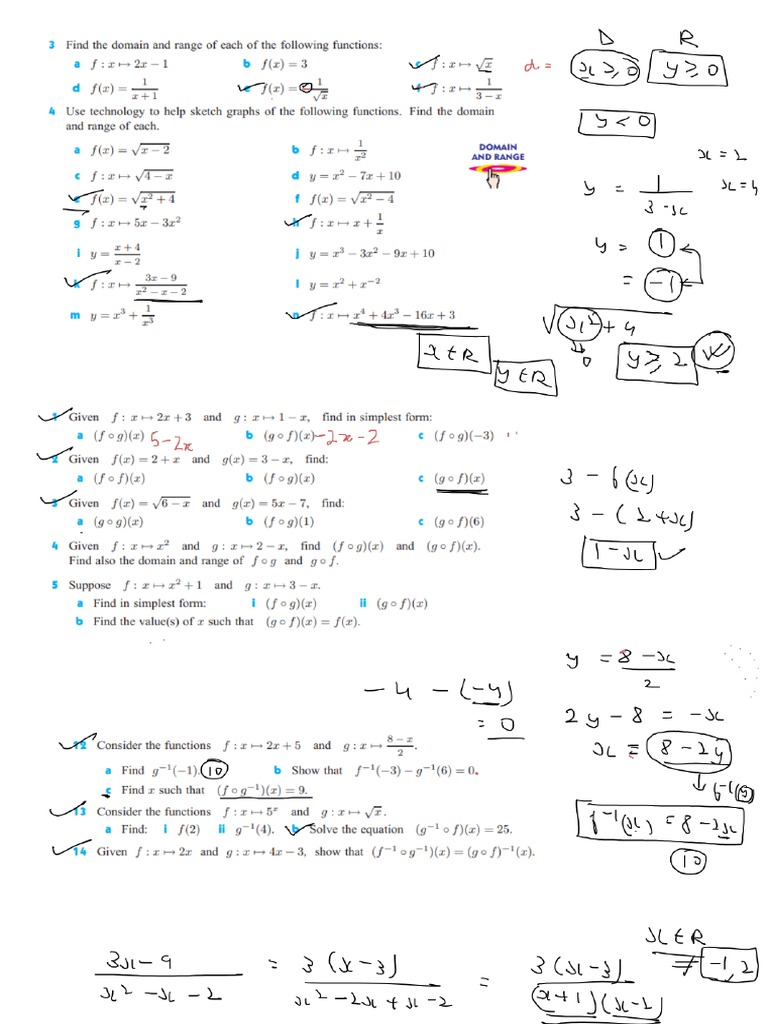 3 Find the domain and range of each of the following functions:
a f : x ↦ 2x − 1 b f(x) = 3 c f : x ↦ √x
d f(x) = 1/(x + 1) e f(x) = 1/√x f f : x ↦ 1/(3 − x)
d =
D R
x ≥ 0 y ≥ 0
y < 0
4 Use technology to help sketch graphs of the following functions. Find the domain
and range of each.
a f(x) = √(x − 2) b f : x ↦ 1/x²
c f : x ↦ √(4 − x) d y = x² − 7x + 10
e f(x) = √(x² + 4) f f(x) = √(x² − 4)
g f : x ↦ 5x − 3x² h f : x ↦ x + 1/x
i y = (x + 4)/(x − 2) j y = x³ − 3x² − 9x + 10
k f : x ↦ (3x − 9)/(x² − x − 2) l y = x² + x⁻²
m y = x³ + 1/x³ n f : x ↦ x⁴ + 4x³ − 16x + 3
DOMAIN
AND RANGE
x = 2
y = 1/(3 - x) x = 4
y = 1
= -1
√(x² + 4)
0 y ≥ 2
x ∈ R
y ∈ R
1 Given f : x ↦ 2x + 3 and g : x ↦ 1 − x, find in simplest form:
a (f ∘ g)(x) 5 - 2x b (g ∘ f)(x) -2x - 2 c (f ∘ g)(−3)
2 Given f(x) = 2 + x and g(x) = 3 − x, find:
a (f ∘ f)(x) b (f ∘ g)(x) c (g ∘ f)(x)
3 Given f(x) = √(6 − x) and g(x) = 5x − 7, find:
a (g ∘ g)(x) b (f ∘ g)(1) c (g ∘ f)(6)
4 Given f : x ↦ x² and g : x ↦ 2 − x, find (f ∘ g)(x) and (g ∘ f)(x).
Find also the domain and range of f ∘ g and g ∘ f.
5 Suppose f : x ↦ x² + 1 and g : x ↦ 3 − x.
a Find in simplest form: i (f ∘ g)(x) ii (g ∘ f)(x)
b Find the value(s) of x such that (g ∘ f)(x) = f(x).
3 - f(x)
3 - (2 + x)
1 - x
-4 - (-4)
= 0
y = (8 - x)/2
2y - 8 = -x
x = 8 - 2y
f⁻¹(y)
f⁻¹(x) = 8 - 2x
10
12 Consider the functions f : x ↦ 2x + 5 and g : x ↦ (8 − x)/2.
a Find g⁻¹(−1). 10 b Show that f⁻¹(−3) − g⁻¹(6) = 0.
c Find x such that (f ∘ g⁻¹)(x) = 9.
13 Consider the functions f : x ↦ 5ˣ and g : x ↦ √x.
a Find: i f(2) ii g⁻¹(4). b Solve the equation (g⁻¹ ∘ f)(x) = 25.
14 Given f : x ↦ 2x and g : x ↦ 4x − 3, show that (f⁻¹ ∘ g⁻¹)(x) = (g ∘ f)⁻¹(x).
x ∈ R
≠ -1, 2
(3x - 9)/(x² - x - 2) = 3(x - 3)/(x² - 2x + x - 2) = 3(x - 3)/((x + 1)(x - 2))